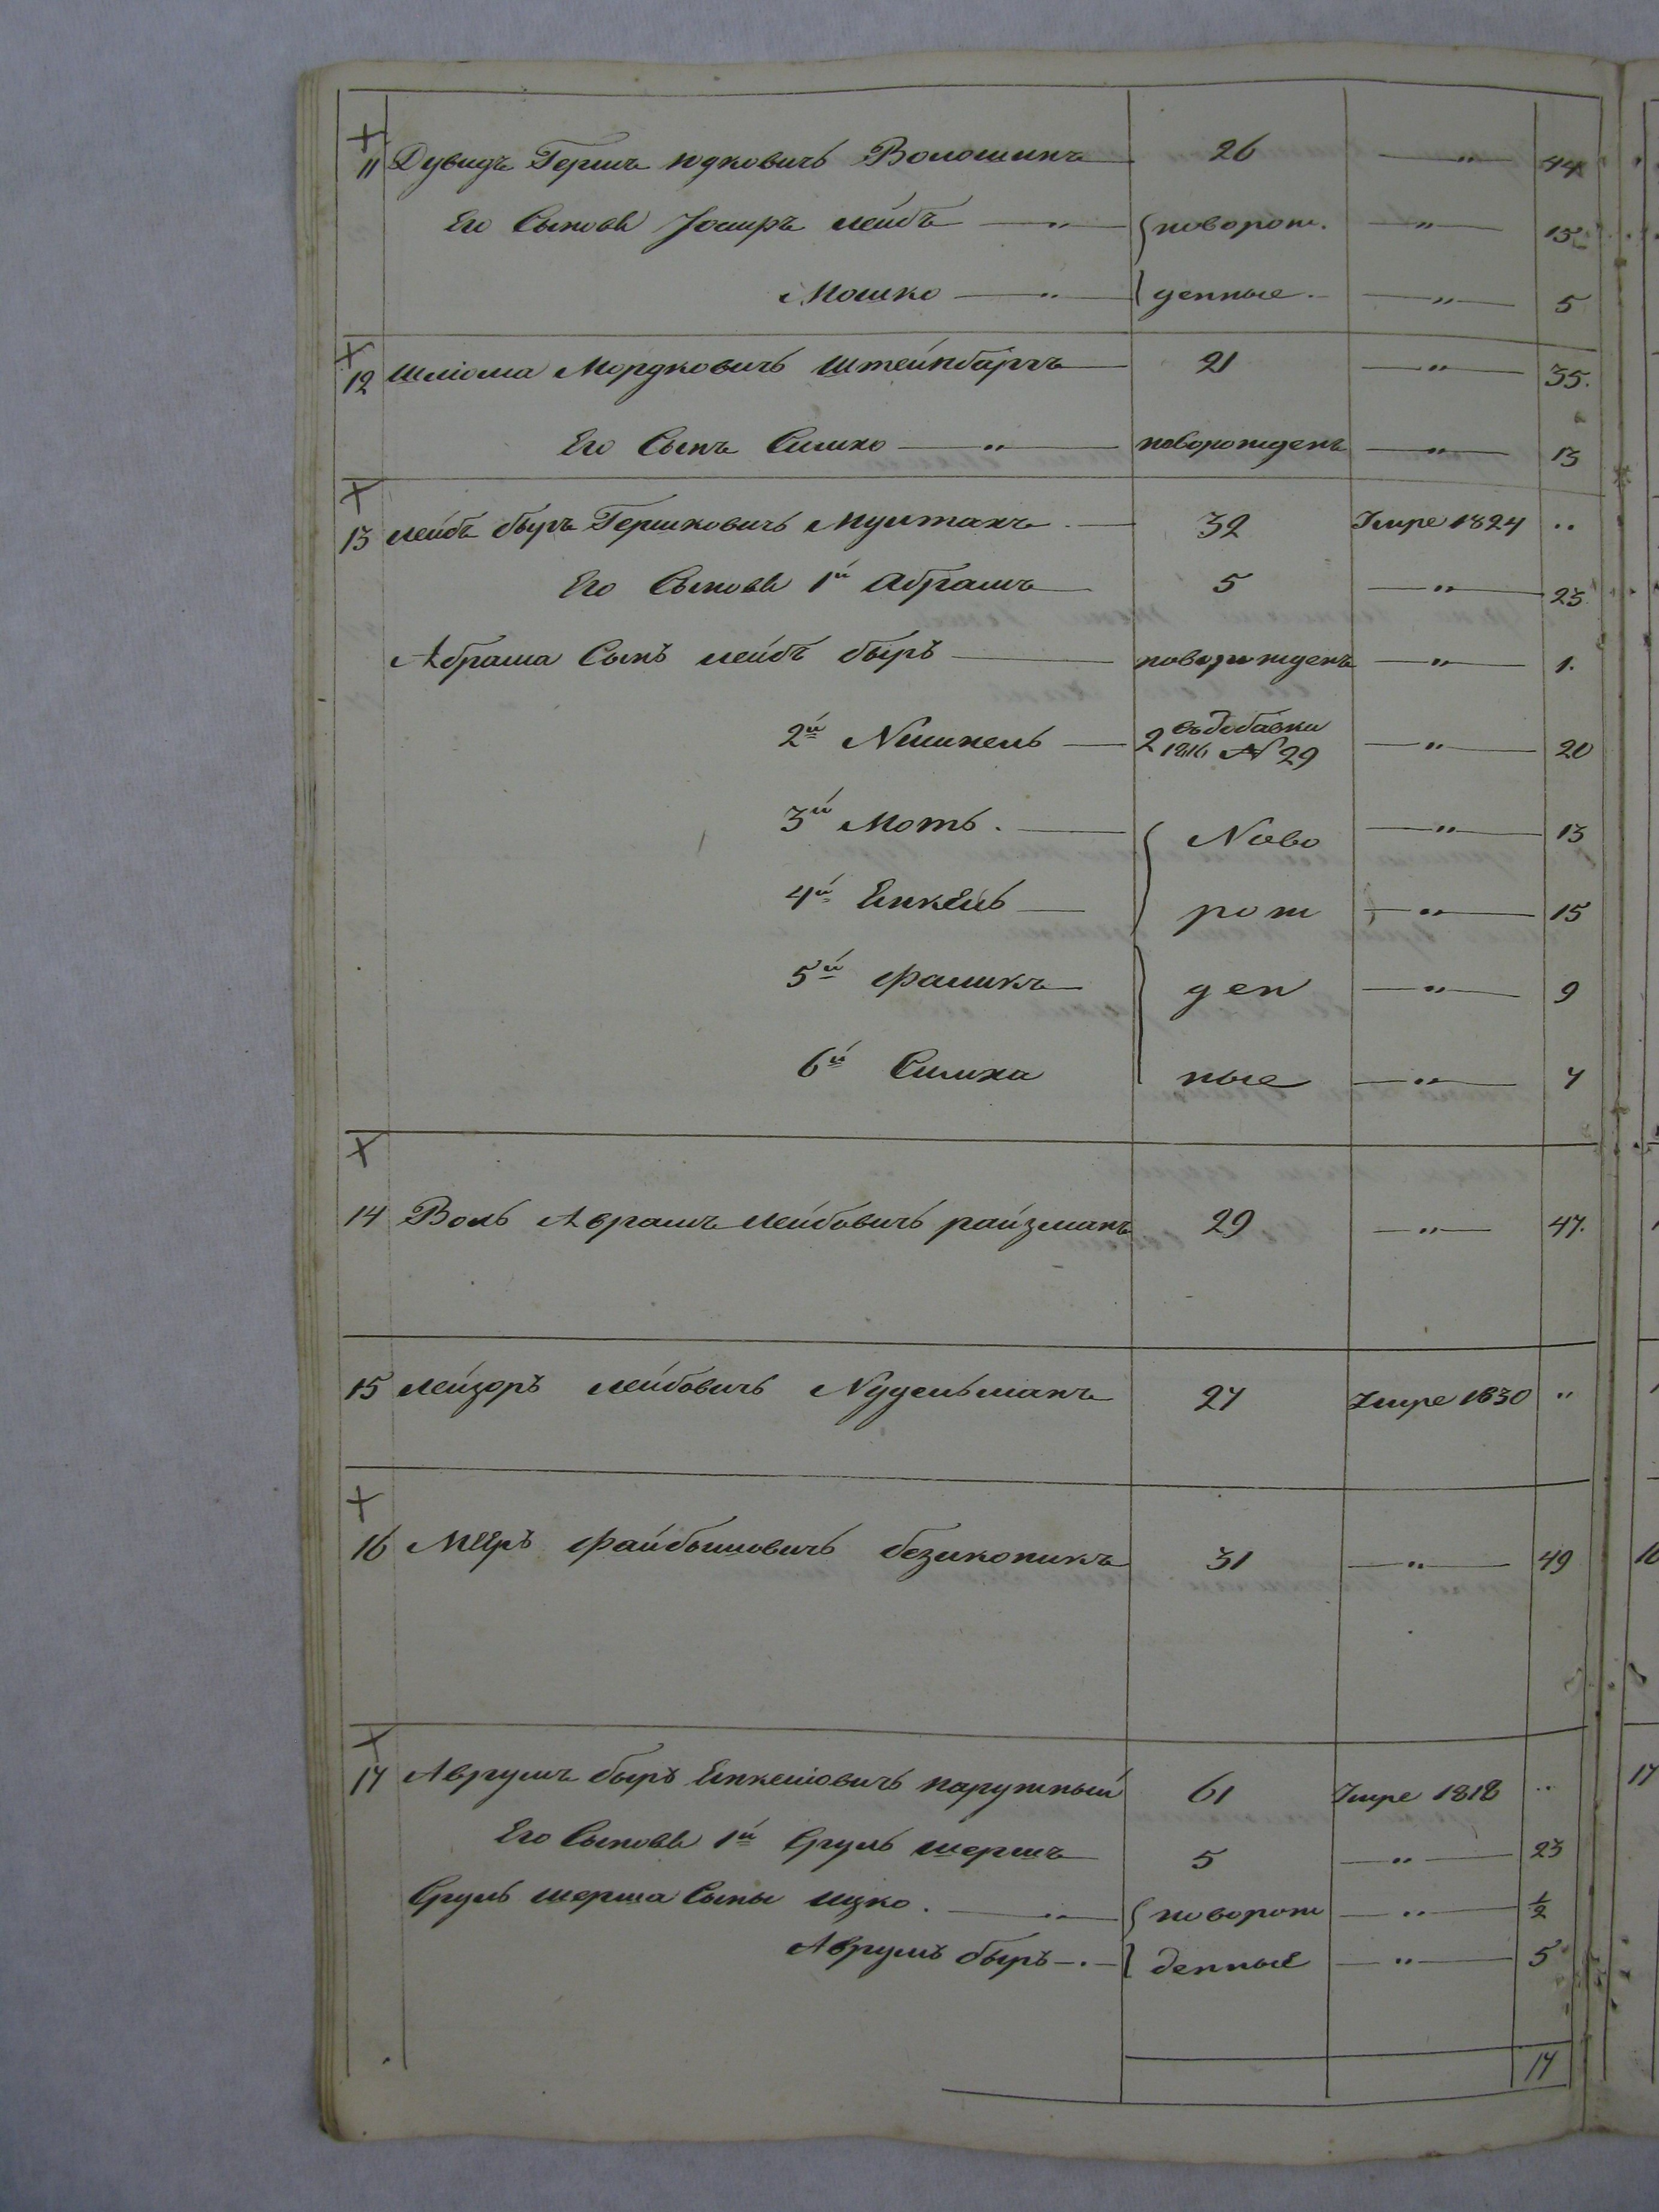 11 Дувидъ Гершъ Юдковичъ Волошинъ 26 — " — 44
Его Сыновя Іосипъ лейбъ — " — новорож. — " — 15
Мошко — " — денные. — " — 5
12 Шліома Мордковичъ Штейнбаргъ 21 — " — 35.
Его Сынъ Симхо — " — новорожденъ — " — 13
13 лейбъ быръ Гершковичъ Мултанъ 32 Умре 1824 "
Его Сыновя 1й Абрамъ 5 — " — 23
Абрама Сынъ лейбъ быръ новорожденъ — " — 1.
2й Нишкель 2 съ добавки 1816 № 29 — " — 20
3й Моть. Ново — " — 13
4й Енкель рож — " — 15
5й Фаликъ ден — " — 9
6й Симха ные — " — 7
14 Воль Аврамъ лейбовичъ райзманъ 29 — " — 47.
15 лейзоръ лейбовичъ Нудельманъ 27 Умре 1830 "
16 Мееръ файбышовичъ безикопикъ 31 — " — 49
17 Аврумъ быръ Енкеліовичъ наружный 61 Умре 1818 "
Его Сыновя 1й Сруль шершъ 5 — " — 23
Сруль шерша Сыны ицко. — " — новорож — " — 1/2
Аврумъ быръ — . — денные — " — 5
17